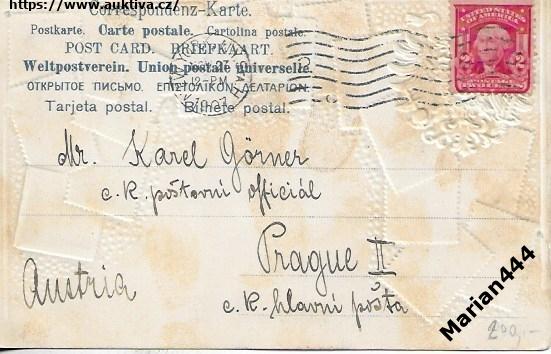 https://www.auktiva.cz/
Correspondenz-Karte.
Postkarte. Carte postale. Cartolina postale.
POST CARD. BRIEFKAART.
Weltpostverein. Union postale universelle.
ОТКРЫТОЕ ПИСЬМО. ΕΠΙΣΤΟΛΙΚΟΝ ΔΕΛΤΑΡΙΟΝ.
Tarjeta postal. Bilhete postal.
UNITED STATES
OF AMERICA
2 2
POSTAGE
TWO CENTS
Mr. Karel Görner
c. k. poštovní officiál
Prague II
Austria
c. k. hlavní pošta
Marian444
200,-